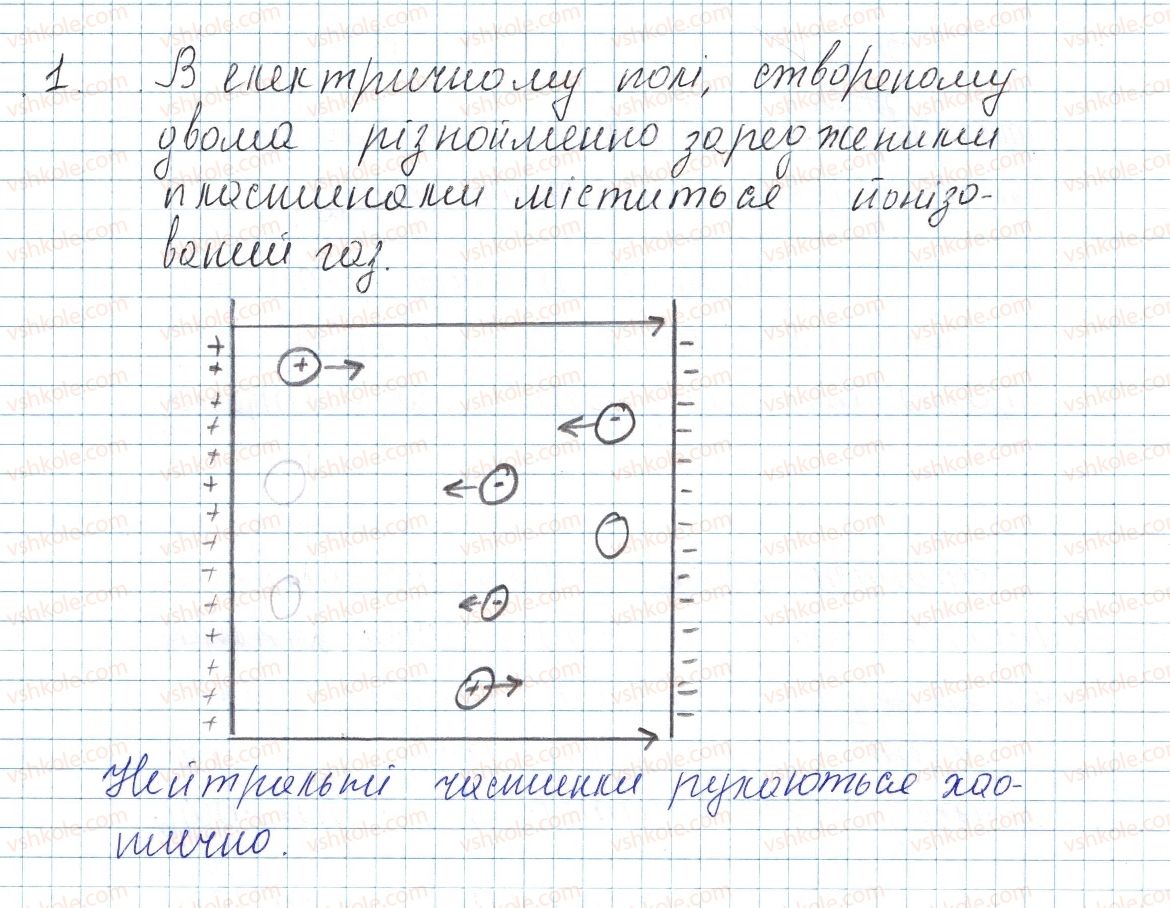 1. В електричному полі, створеному
двома різнойменно зарядженими
пластинами міститься йонізо-
ваний газ.
Нейтральні частинки рухаються хао-
тично.